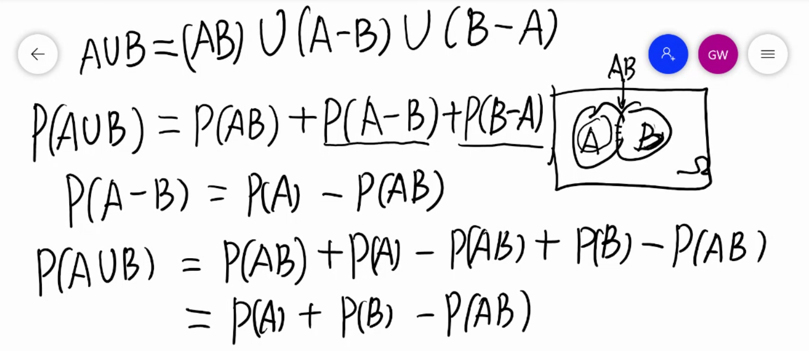 A∪B=(AB)∪(A−B)∪(B−A)
GW
AB
P(A∪B)=P(AB)+P(A−B)+P(B−A)
A B
Ω
P(A−B)=P(A)−P(AB)
P(A∪B)=P(AB)+P(A)−P(AB)+P(B)−P(AB)
=P(A)+P(B)−P(AB)